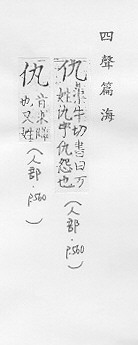 四聲篇海
仇 渠牛切書曰万
姓仇予仇怨也
(人部·P560)
仇 音求讐
也又姓
(人部·P560)